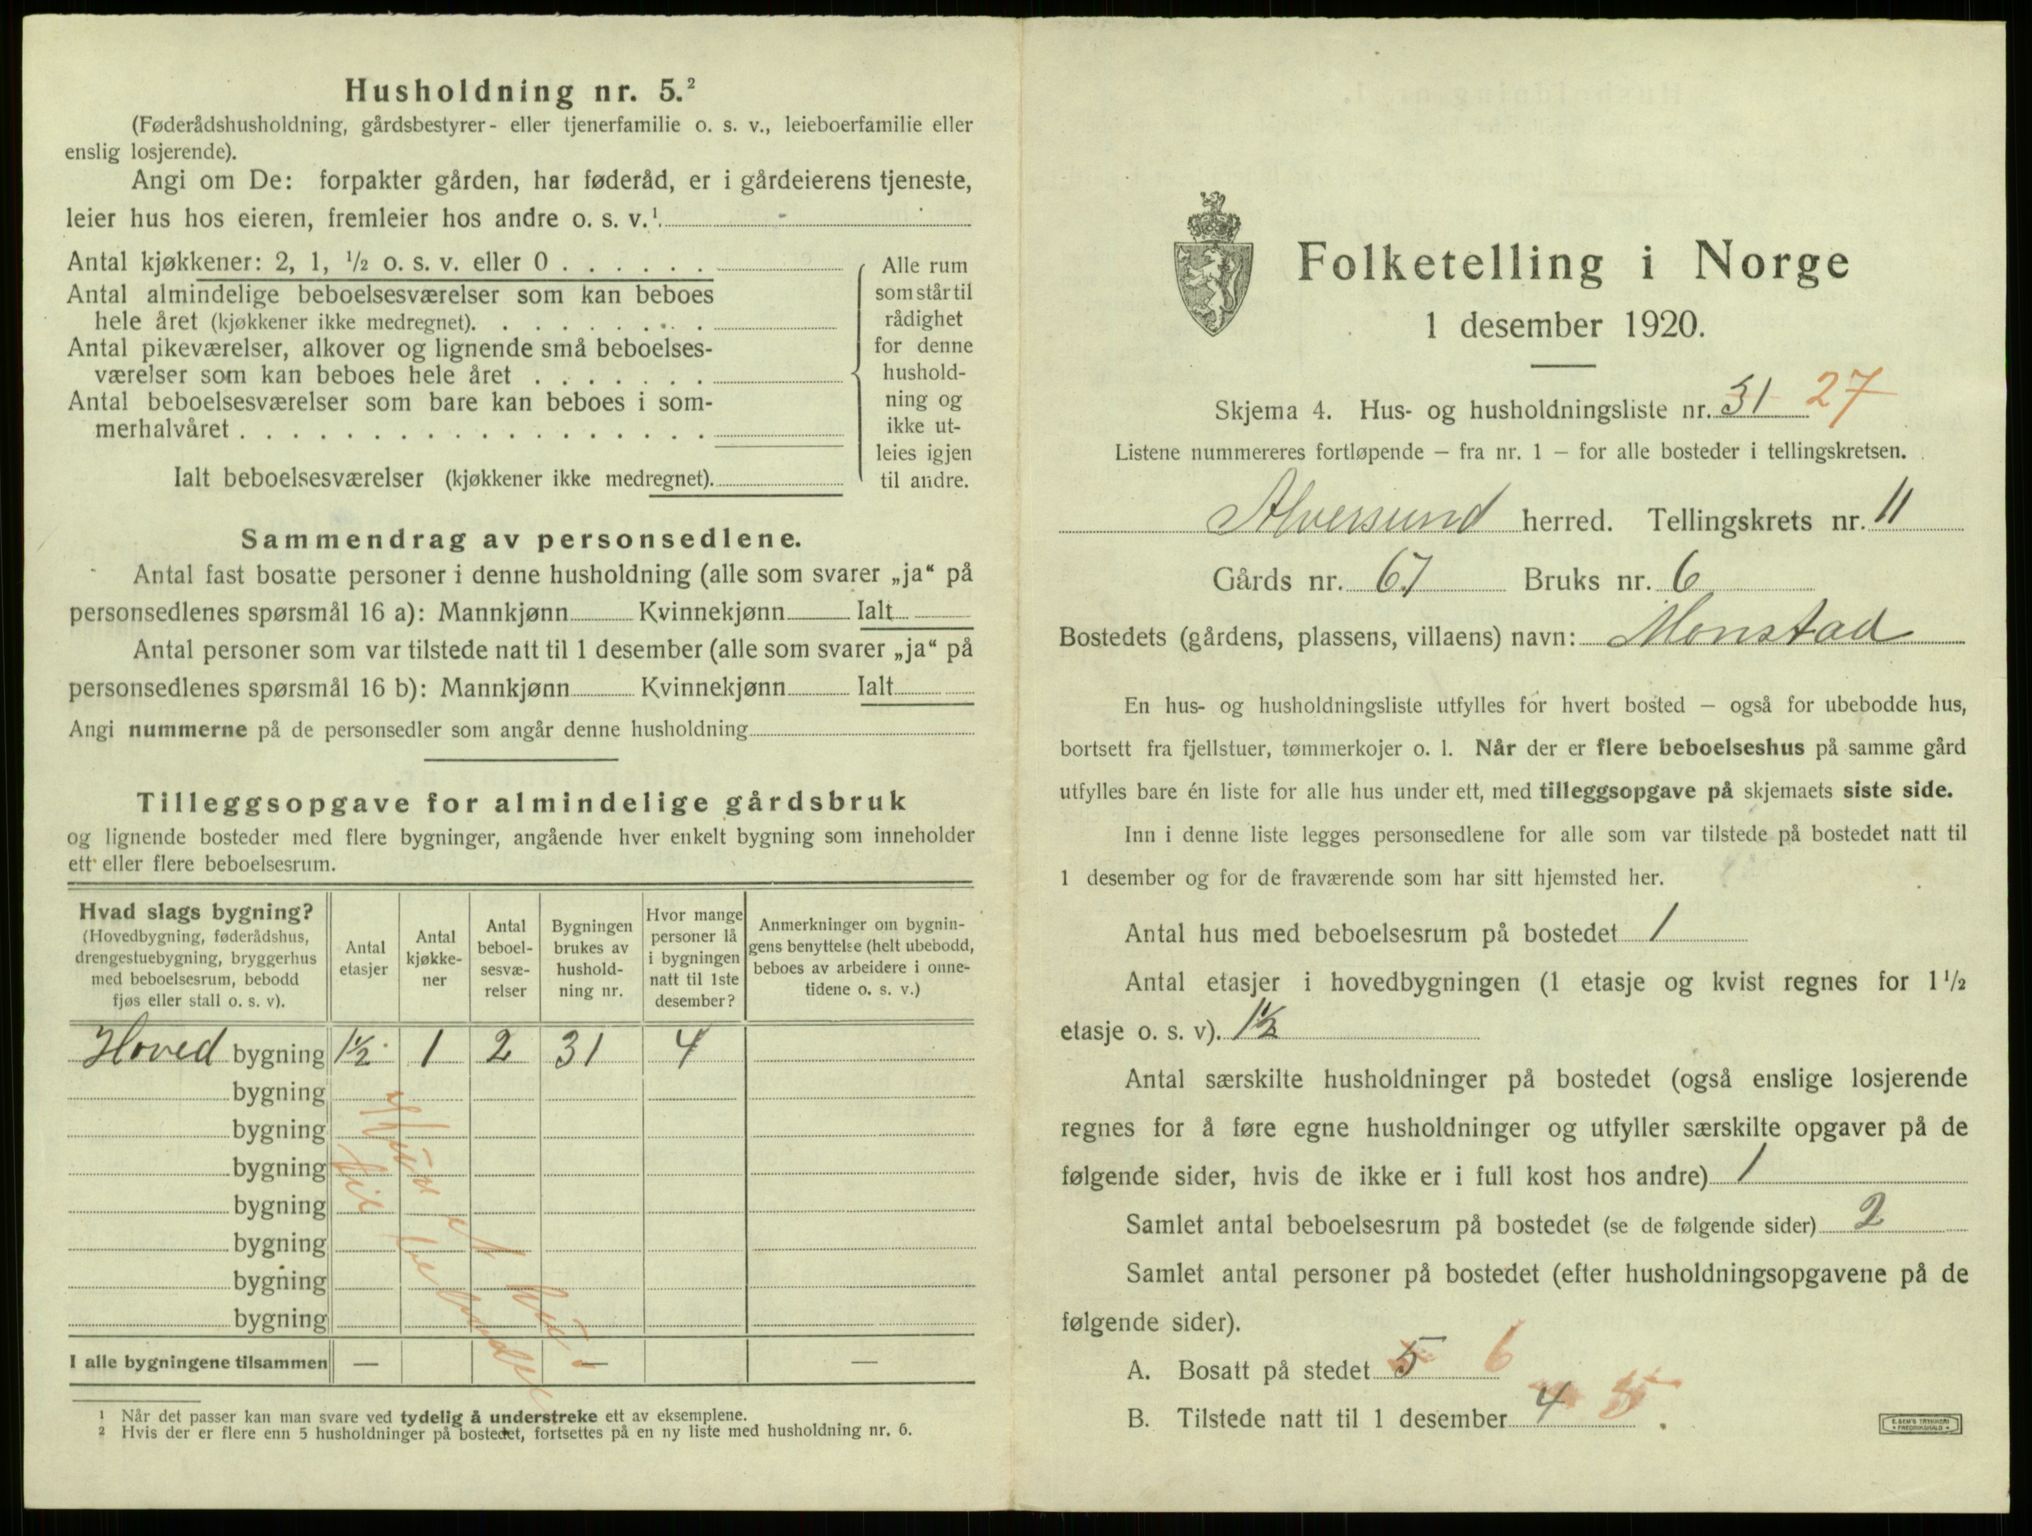 Husholdning nr. 5.²
(Føderådshusholdning, gårdsbestyrer- eller tjenerfamilie o. s. v., leieboerfamilie eller
enslig losjerende).
Angi om De: forpakter gården, har føderåd, er i gårdeierens tjeneste,
leier hus hos eieren, fremleier hos andre o. s. v.¹
Antal kjøkkener: 2, 1, ½ o. s. v. eller 0 . . . . . .
Antal almindelige beboelsesværelser som kan beboes
hele året (kjøkkener ikke medregnet). . . . . . . . .
Antal pikeværelser, alkover og lignende små beboelses-
værelser som kan beboes hele året . . . . . . .
Antal beboelsesværelser som bare kan beboes i som-
merhalvåret . . . . . . . . . . . . . . . . . .
Ialt beboelsesværelser (kjøkkener ikke medregnet).
Alle rum
som står til
rådighet
for denne
hushold-
ning og
ikke ut-
leies igjen
til andre.
Sammendrag av personsedlene.
Antal fast bosatte personer i denne husholdning (alle som svarer „ja“ på
personsedlenes spørsmål 16 a): Mannkjønn Kvinnekjønn Ialt
Antal personer som var tilstede natt til 1 desember (alle som svarer „ja“ på
personsedlenes spørsmål 16 b): Mannkjønn Kvinnekjønn Ialt
Angi nummerne på de personsedler som angår denne husholdning
Tilleggsopgave for almindelige gårdsbruk
og lignende bosteder med flere bygninger, angående hver enkelt bygning som inneholder
ett eller flere beboelsesrum.
Hvad slags bygning?
(Hovedbygning, føderådshus,
drengestuebygning, bryggerhus
med beboelsesrum, bebodd
fjøs eller stall o. s. v).
Antal
etasjer
Antal
kjøkke-
ner
Antal
beboel-
sesvæ-
relser
Bygningen
brukes av
hushold-
ning nr.
Hvor mange
personer lå
i bygningen
natt til 1ste
desember?
Anmerkninger om bygnin-
gens benyttelse (helt ubebodd,
beboes av arbeidere i onne-
tidene o. s. v.)
Hoved bygning 1½ 1 2 31 4
bygning
bygning
bygning
bygning
bygning
bygning
bygning
I alle bygningene tilsammen — — —
¹ Når det passer kan man svare ved tydelig å understreke ett av eksemplene.
² Hvis der er flere enn 5 husholdninger på bostedet, fortsettes på en ny liste med husholdning nr. 6.
Folketelling i Norge
1 desember 1920.
Skjema 4. Hus- og husholdningsliste nr. 31 27
Listene nummereres fortløpende – fra nr. 1 – for alle bosteder i tellingskretsen.
Alversund herred. Tellingskrets nr. 11
Gårds nr. 67 Bruks nr. 6
Bostedets (gårdens, plassens, villaens) navn: Monstad
En hus- og husholdningsliste utfylles for hvert bosted – også for ubebodde hus,
bortsett fra fjellstuer, tømmerkojer o. l. Når der er flere beboelseshus på samme gård
utfylles bare én liste for alle hus under ett, med tilleggsopgave på skjemaets siste side.
Inn i denne liste legges personsedlene for alle som var tilstede på bostedet natt til
1 desember og for de fraværende som har sitt hjemsted her.
Antal hus med beboelsesrum på bostedet 1
Antal etasjer i hovedbygningen (1 etasje og kvist regnes for 1½
etasje o. s. v). 1½
Antal særskilte husholdninger på bostedet (også enslige losjerende
regnes for å føre egne husholdninger og utfyller særskilte opgaver på de
følgende sider, hvis de ikke er i full kost hos andre) 1
Samlet antal beboelsesrum på bostedet (se de følgende sider) 2
Samlet antal personer på bostedet (efter husholdningsopgavene på de
følgende sider).
A. Bosatt på stedet 5 6
B. Tilstede natt til 1 desember 4 5